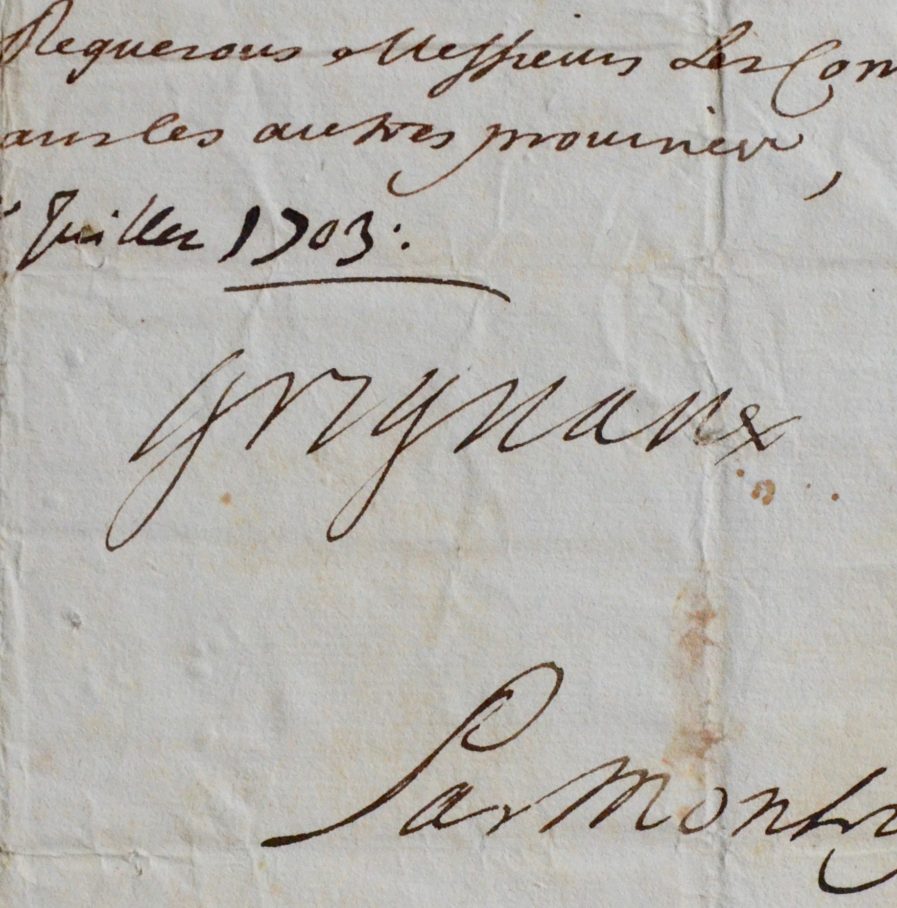 Requerons Messieurs Les Com
ans les autres provinces,
Juillet 1703.
Grignan
Par Mon